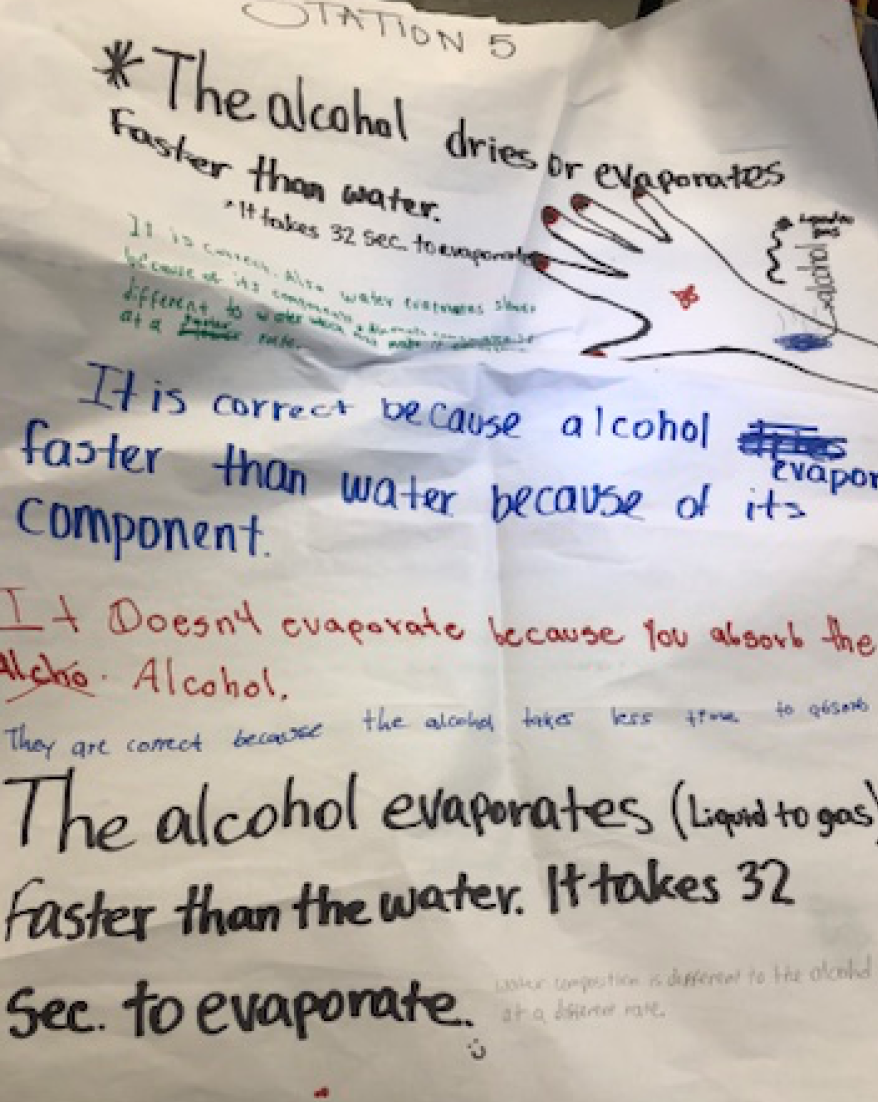 STATION 5
* The alcohol dries or evaporates
Faster than water.
* It takes 32 sec. to evaporate
It is correct. Also water evaporates slower
because of its components
different to water which
at a rate.
alcohol
It is correct because alcohol
evapor
faster than water because of its
component.
It Doesn't evaporate because You absorb the
Alcho. Alcohol.
They are correct because the alcohol takes less time to absorb
The alcohol evaporates (Liquid to gas)
Faster than the water. It takes 32
Sec. to evaporate.
water compostion is different to the alcohol
at a different rate.